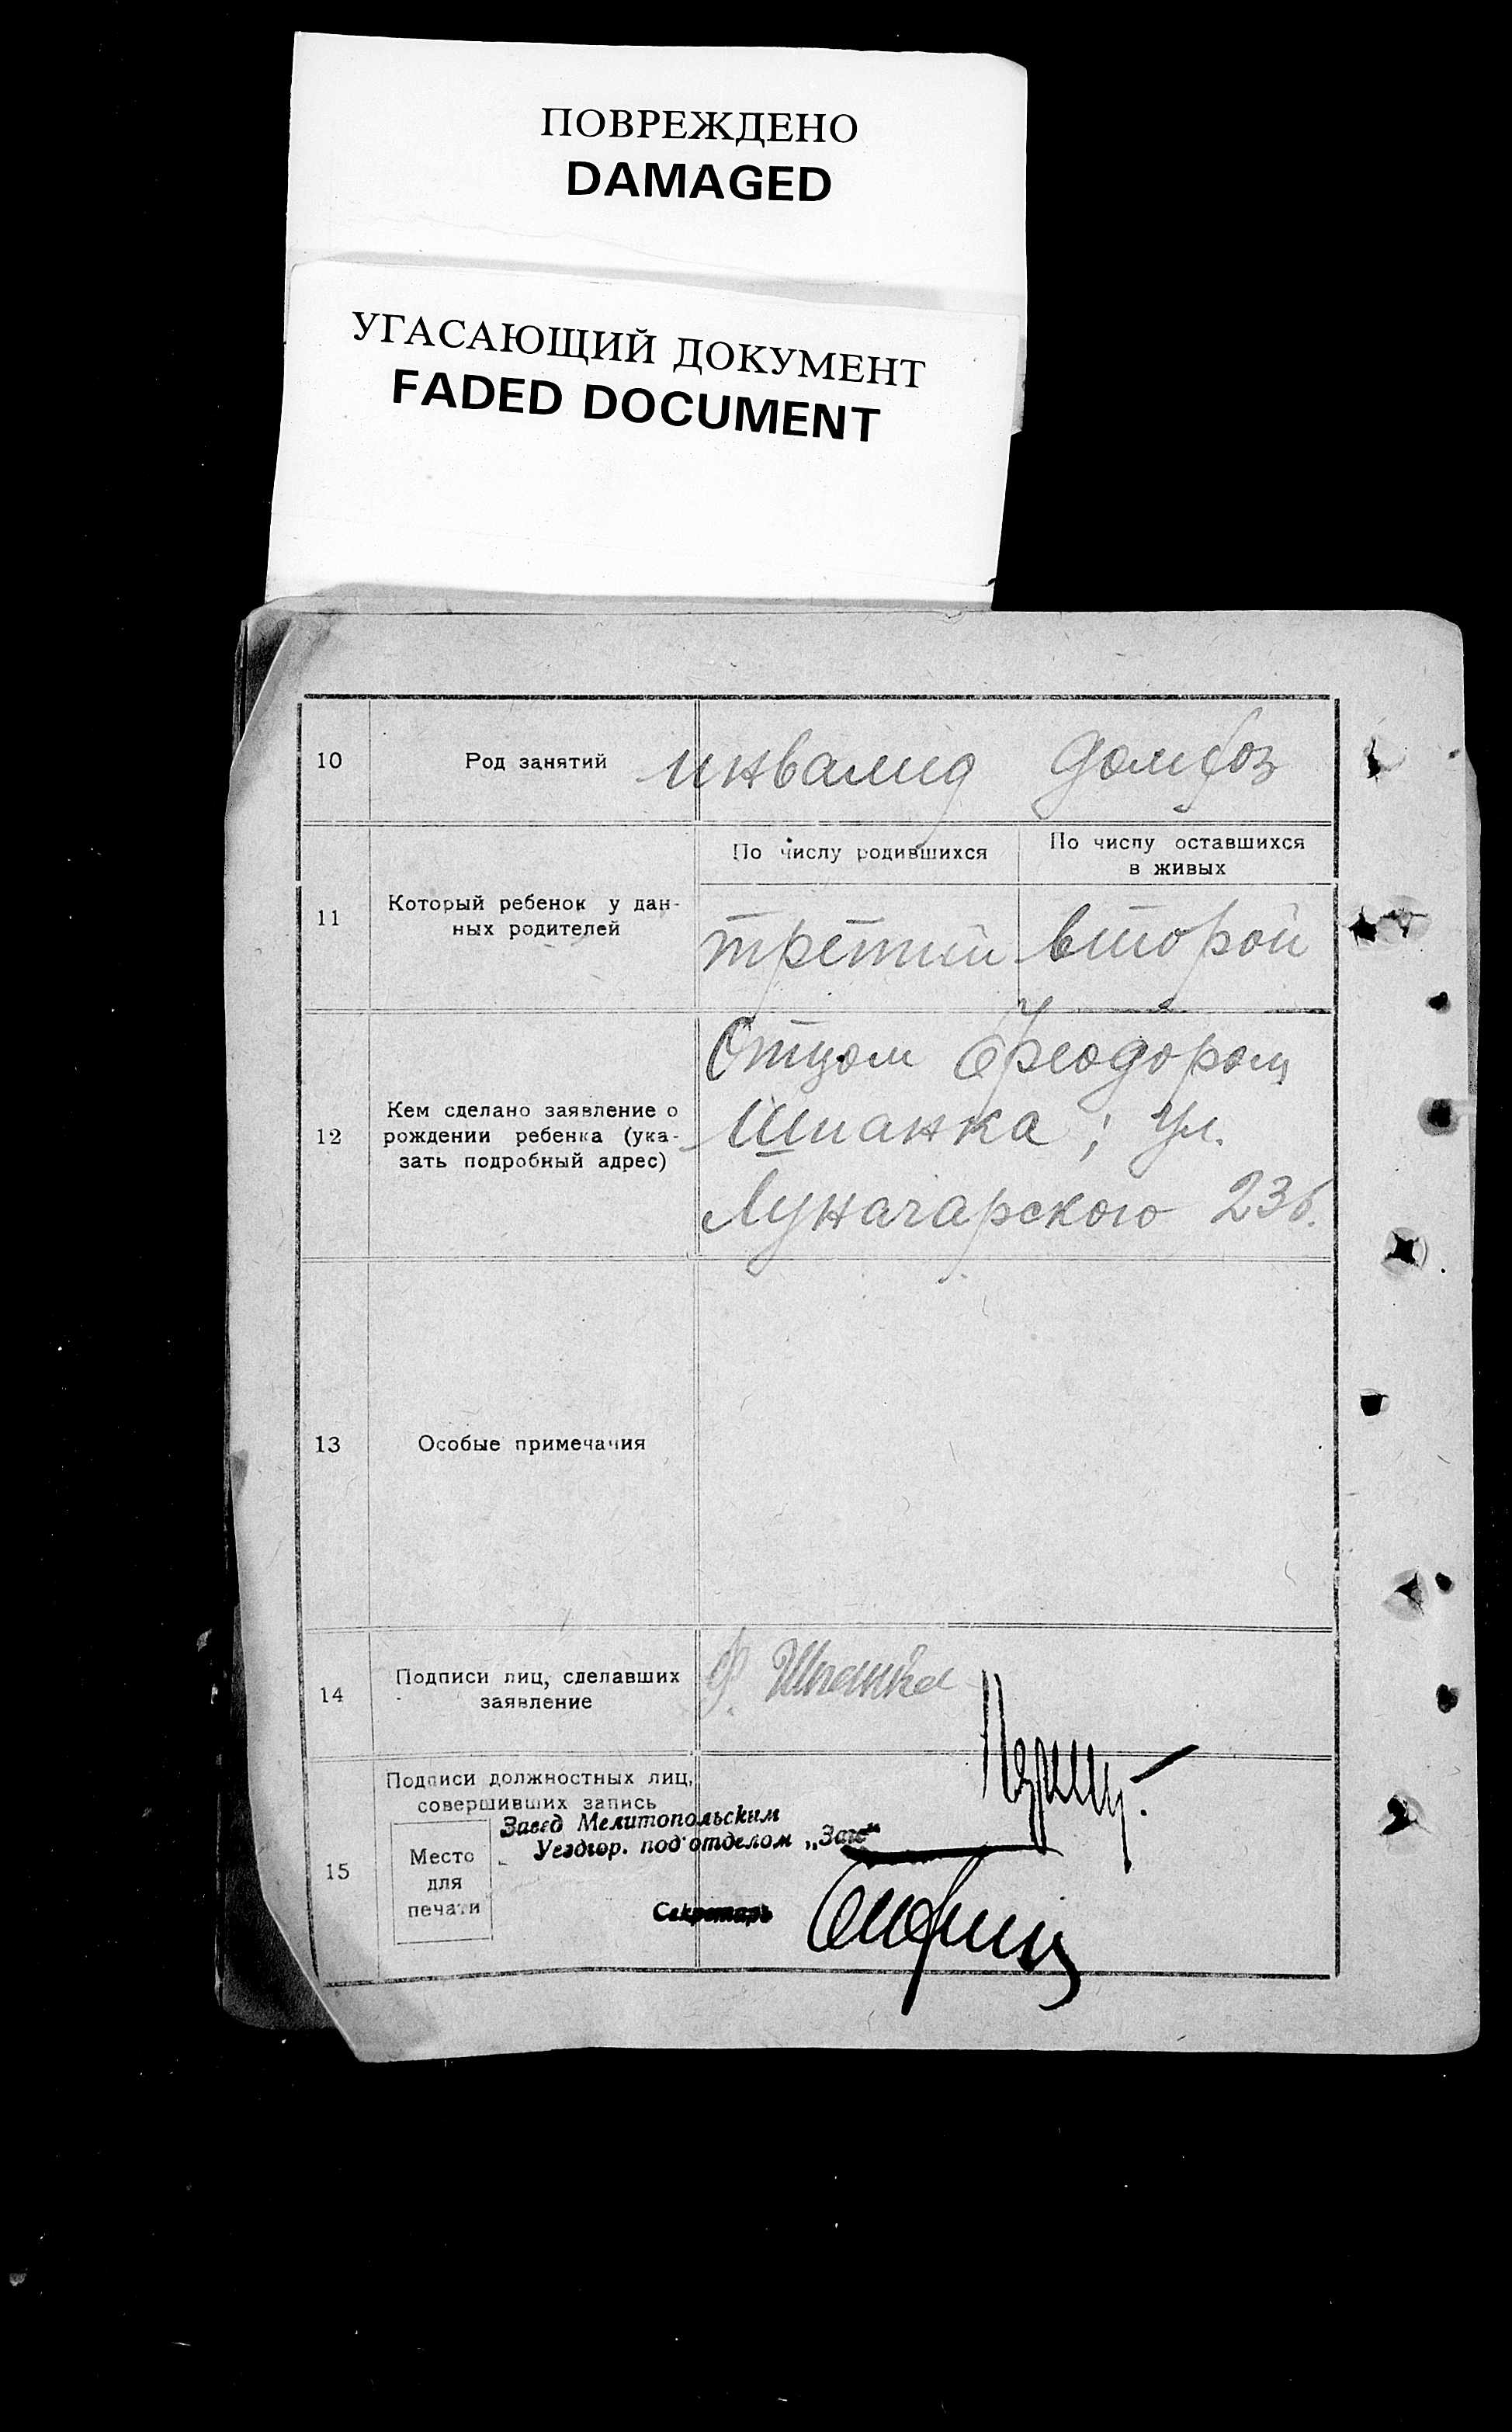 ПОВРЕЖДЕНО
DAMAGED
УГАСАЮЩИЙ ДОКУМЕНТ
FADED DOCUMENT
10 Род занятий инвалид домхоз
11 Который ребенок у дан-
ных родителей
По числу родившихся
третий
По числу оставшихся
в живых
второй
12 Кем сделано заявление о
рождении ребенка (ука-
зать подробный адрес)
Отцом Феодором
Шпанка; ул.
Луначарского 236.
13 Особые примечания
14 Подписи лиц, сделавших
заявление
Ф. Шпанка
15 Подписи должностных лиц,
совершивших запись
Место
для
печати
Завед Мелитопольским
Уездгор. под'отделом „Загс“
Секретарь